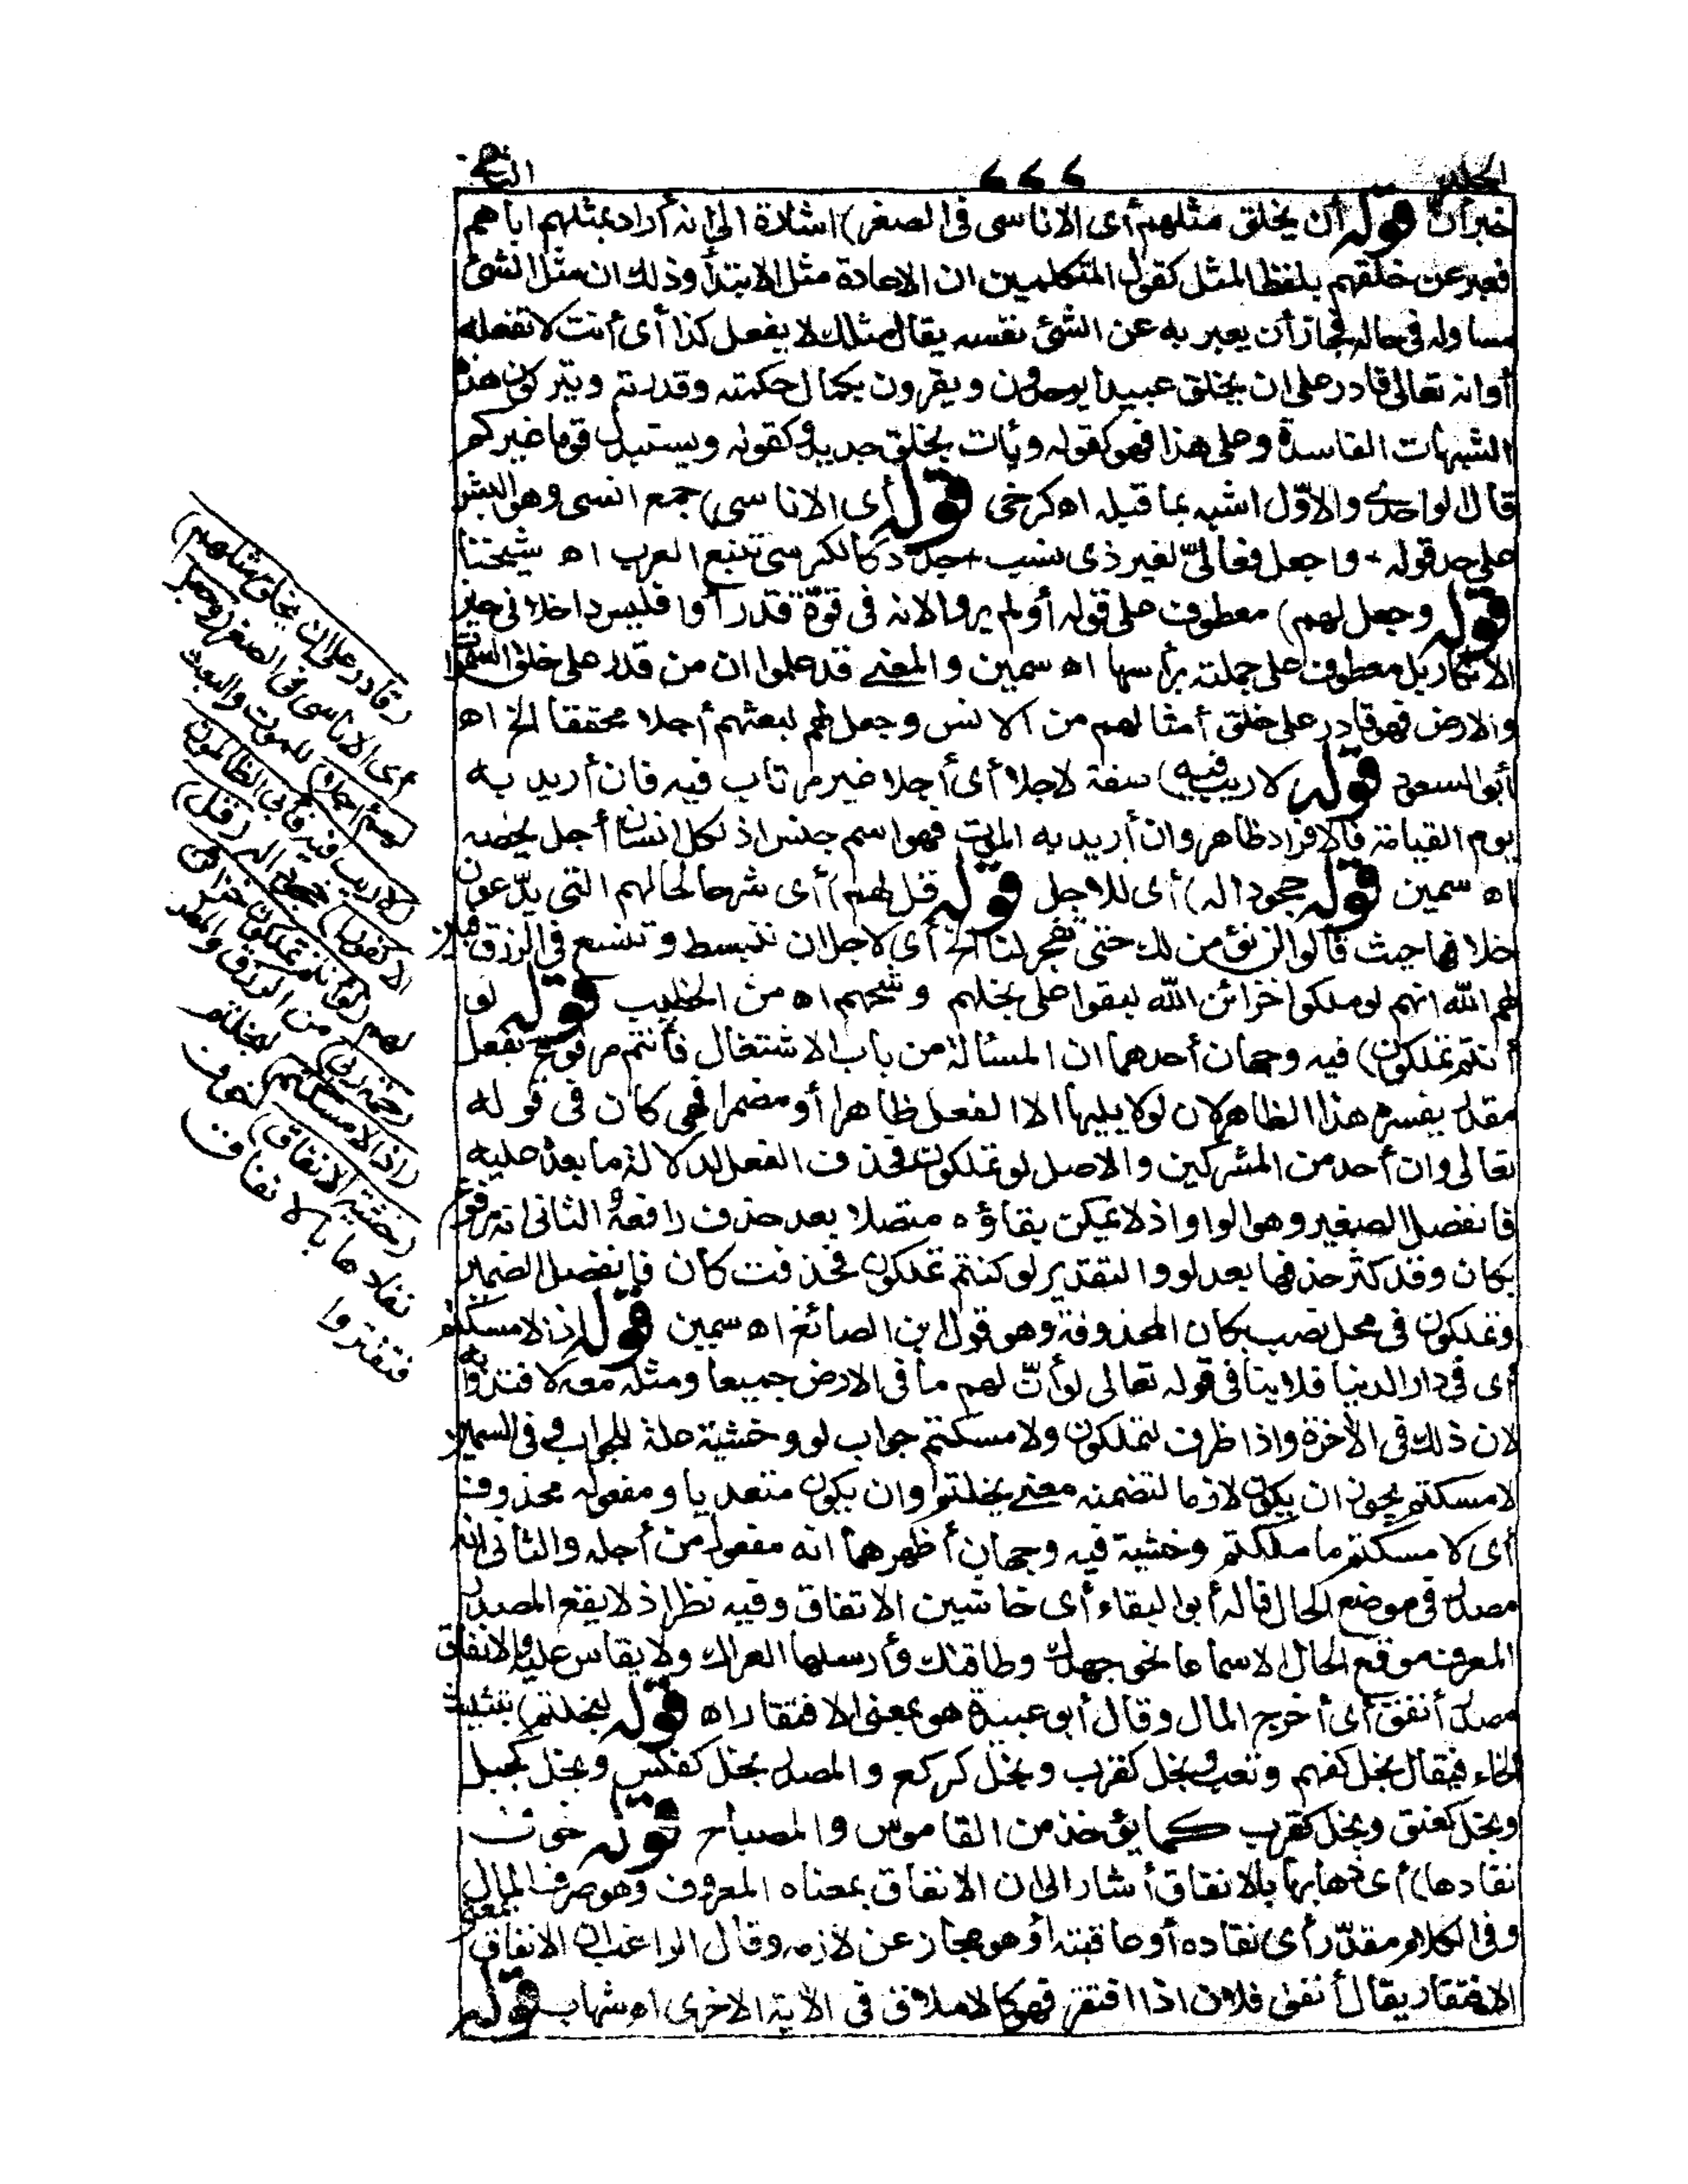 ٦٦٦
خبر أن قوله أن يخلق مثلهم أى الاناسى فى الصغر) اشارة الى انه أراد بمثلهم اياهم
فعبر عن خلقهم بلفظ المثل كقول المتكلمين ان الاعادة مثل الابتدأ وذلك ان مثل الشئ
مساو له فى حاله فجاز أن يعبر به عن الشئ نفسه يقال مثلك لا يفعل كذا أى أنت لا تفعله
أو انه تعالى قادر على ان يخلق عبيدا يوحدون ويقرون بكمال حكمته وقدرته ويتركون هذه
الشبهات الفاسدة وعلى هذا فهو كقوله ويأت بخلق جديد وكقوله ويستبدل قوما غيركم
قال الواحدى والاوّل اشبه بما قبله اه كرخى قوله أى الاناسى) جمع انسى وهو البشر
على حد قوله * واجعل فعالىّ لغير ذى نسب * جدّد كالكرسى تتبع العرب اه شيخنا
قوله وجعل لهم) معطوف على قوله أولم يروا لانه فى قوّة قد رأوا فليس داخلا فى حيز
الانكار بل معطوف على جملته برأسها اه سمين والمعنى قد علموا ان من قدر على خلق السموات
والارض فهو قادر على خلق أمثالهم من الانس وجعل لهم لبعثهم أجلا محققا الخ اه
أبو السعود قوله لا ريب فيه) صفة لاجلا أى أجلا غير مرتاب فيه فان أريد به
يوم القيامة فالافراد ظاهر وان أريد به الموت فهو اسم جنس اذ لكل انسان أجل يخصه
اه سمين قوله جحودا له) أى للاجل قوله قل لهم) أى شرحا لحالهم التى يدّعون
خلافها حيث قالوا لن نؤمن لك حتى تفجر لنا الخ أى لاجل ان ننبسط ونتسع فى الرزق فبين
لهم الله انهم لو ملكوا خزائن الله لبقوا على بخلهم وشحهم اه من الخطيب قوله لو
أنتم تملكون) فيه وجهان أحدهما ان المسئالة من باب الاشتغال فأنتم مرفوع بفعل
مقدر يفسره هذا الظاهر لان لو لا يليها الا الفعل ظاهرا أو مضمرا فهى كان فى قوله
تعالى وان أحد من المشركين والاصل لو تملكون فحذف الفعل لدلالة ما بعده عليه
فانفصل الضمير وهو الواو اذ لا يمكن بقاؤه متصلا بعد حذف رافعه والثانى انه مرفوع
بكان وقد كثر حذفها بعد لو والتقدير لو كنتم تملكون فحذفت كان فانفصل الضمير
وتملكون فى محل نصب بكان المحذوفة وهو قول ابن الصائغ اه سمين قوله اذا لامسكتم
أى فى دار الدنيا فلا ينافى قوله تعالى لو أنّ لهم ما فى الارض جميعا ومثله معه لافتدوا به
لان ذلك فى الآخرة واذا ظرف لتملكون ولامسكتم جواب لو وخشية علة للجواب وفى السمين
لامسكتم يجوز ان يكون لازما لتضمنه معنى بخلتم وان يكون متعديا ومفعوله محذوف
أى لامسكتم ما ملكتم وخشية فيه وجهان أظهرهما انه مفعول من أجله والثانى انه
مصدر فى موضع الحال قاله أبو البقاء أى خاشين الانفاق وفيه نظر اذ لا يقع المصدر
المعرفه موقع الحال الا سماعا نحو جهدك وطاقتك وأرسلها العراك ولا يقاس عليه والانفاق
مصدر أنفق أى أخرج المال وقال أبو عبيدة هو بمعنى الافتقار اه قوله لبخلتم) بتثليث
الخاء فيقال بخل كفهم وتعب وبخل كقرب وبخل كركع والمصدر بخل كفلس وبخل كجبل
وبخل كعنق وبخل كقرب كما يؤخذ من القاموس والمصباح قوله خوف
نفادها) أى ذهابها بالانفاق أشار الى ان الانفاق بمعناه المعروف وهو صرف المال
وفى الكلام مقدّر أى نفاده أو عاقبته أو هو مجاز عن لازمه وقال الراغب ان الانفاق بمعنى
الافتقار يقال أنفق فلان اذا افتقر فهو كالاملاق فى الآية الاخرى اه شهاب قوله
(قادر على ان يخلق مثلهم)
أى الاناسى فى الصغر (وجعل
لهم أجلا) للموت والبعث
(لا ريب فيه فأبى الظالمون
الا كفورا) جحودا له (قل)
لهم (لو أنتم تملكون خزائن
رحمة ربى) من الرزق والمطر
(اذا لامسكتم) لبخلتم
(خشية الانفاق) خوف
نفادها بالانفاق
فتفتروا